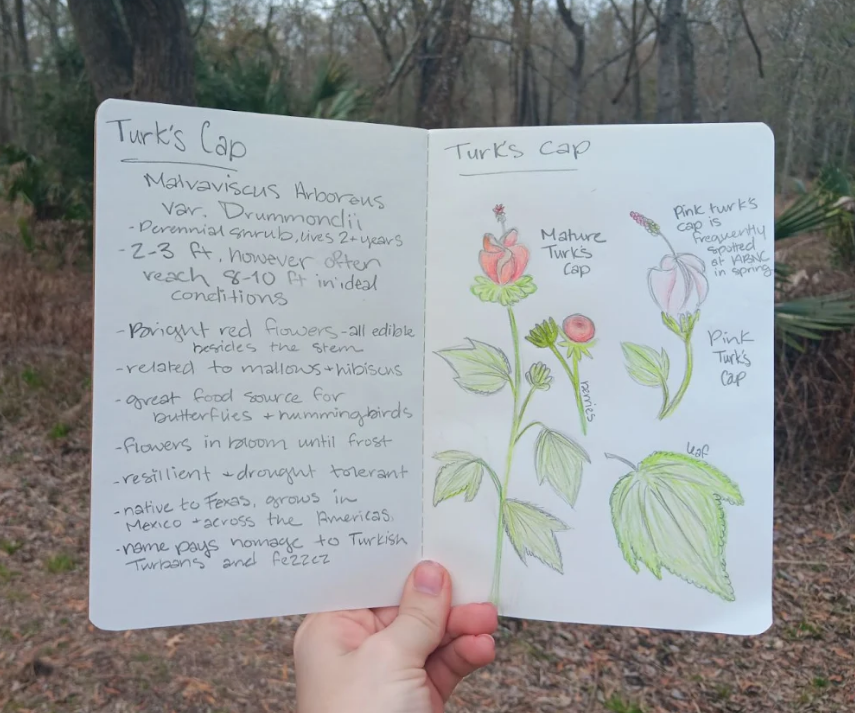 Turk's Cap
Malvaviscus Arboreus
Var. Drummondii
- Perennial shrub, lives 2+ years
- 2-3 ft, however often
reach 8-10 ft in ideal
conditions
- Bright red flowers - all edible
besides the stem
- related to mallows + hibiscus
- great food source for
butterflies + hummingbirds
- flowers in bloom until frost
- resillient + drought tolerant
- native to Texas, grows in
Mexico + across the Americas.
- name pays homage to Turkish
Turbans and fezzez
Turk's Cap
Mature
Turk's
Cap
berries
Pink turk's
cap is
frequently
spotted
at ABNC
in spring
Pink
Turk's
Cap
leaf